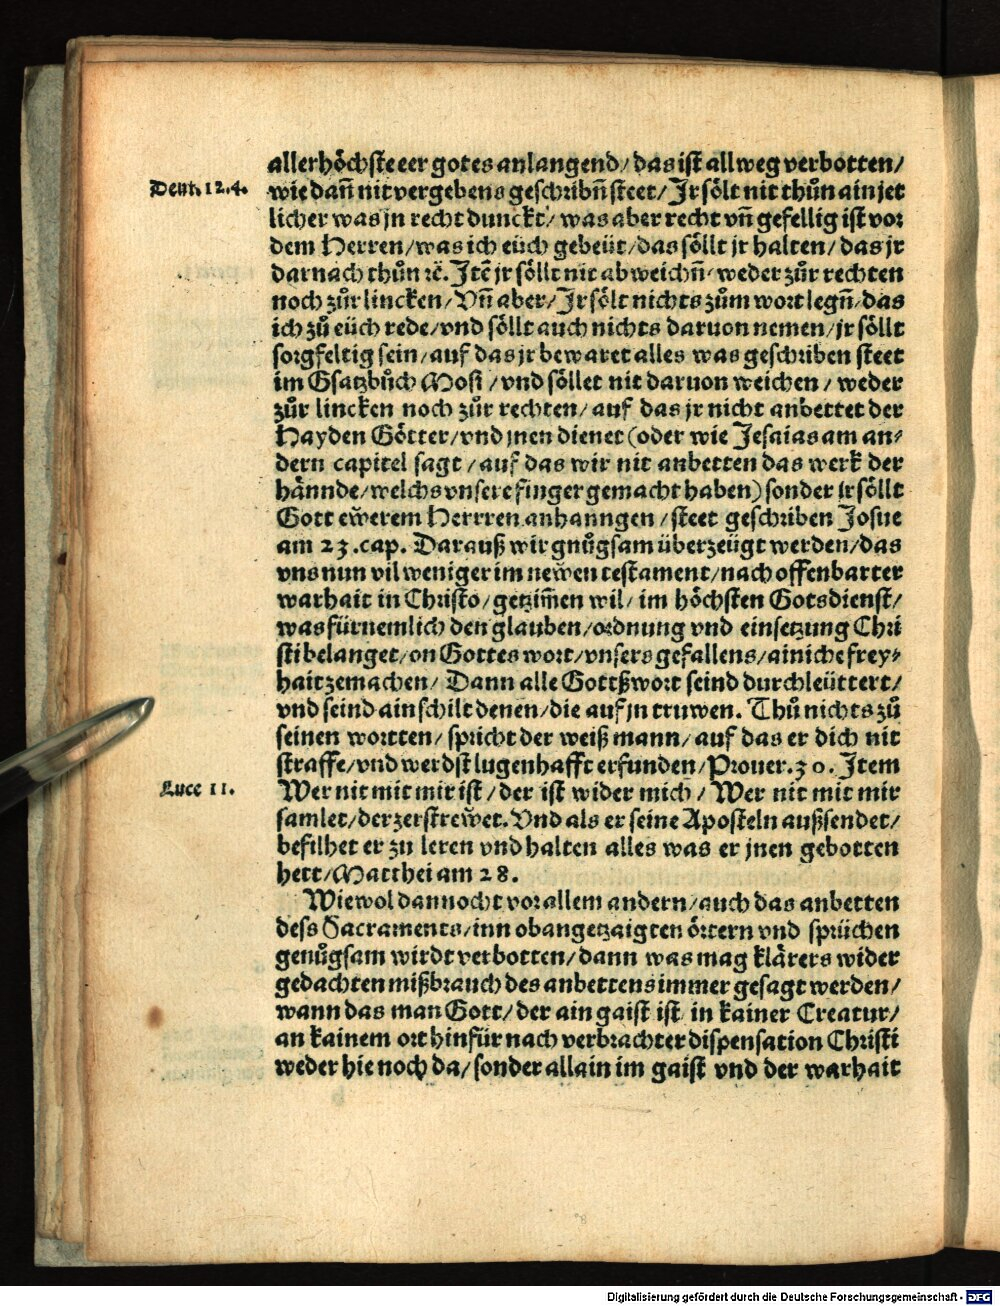 allerhöchste eer gotes anlangend/ das ist allweg verbotten/
Deut. 12.4.
wie dañ nit vergebens geschribñ steet/ Jr sölt nit thůn ain jet
licher was jn recht dunckt/ was aber recht vñ gefellig ist vor
dem Herren/ was ich eüch gebeüt/ das söllt jr halten/ das jr
darnach thůn ꝛc̃. Jtẽ jr söllt nit abweichñ/ weder zůr rechten
noch zůr lincken/ Vñ aber/ Jr sölt nichts zům wort legñ/ das
ich zů eüch rede/ vnd söllt auch nichts daruon nemen/ jr söllt
sorgfeltig sein/ auf das jr bewaret alles was geschriben steet
im Gsatzbůch Mosi / vnd söllet nit daruon weichen / weder
zůr lincken noch zůr rechten/ auf das jr nicht anbettet der
Hayden Götter/ vnd jnen dienet (oder wie Jesaias am an⸗
dern capitel sagt / auf das wir nit anbetten das werk der
hännde/ welchs vnsere finger gemacht haben) sonder jr söllt
Gott ewerem Herrren anhanngen / steet geschriben Josue
am 23. cap. Darauß wir gnůgsam überzeügt werden/ das
vns nun vil weniger im newen testament/ nach offenbarter
warhait in Christo/ getzim̃en wil/ im höchsten Gotsdienst/
was fürnemlich den glauben/ ordnung vnd einsetzung Chri
sti belanget/ on Gottes wort/ vnsers gefallens/ ainiche frey⸗
hait zemachen/ Dann alle Gottßwort seind durchleüttert/
vnd seind ain schilt denen/ die auf jn truwen. Thů nichts zů
seinen wortten/ spricht der weiß mann/ auf das er dich nit
straffe/ vnd werdst lugenhafft erfunden/ Prouer. 30. Jtem
Luce 11.
Wer nit mit mir ist / der ist wider mich / Wer nit mit mir
samlet/ der zerstrewet. Vnd als er seine Aposteln außsendet/
befilhet er zu leren vnd halten alles was er jnen gebotten
hett/ Matthei am 28.
Wiewol dannocht vor allem andern/ auch das anbetten
dess Sacraments/ inn obangetzaigten örtern vnd sprüchen
genůgsam wirdt verbotten/ dann was mag klärers wider
gedachten mißbrauch des anbettens immer gesagt werden/
wann das man Gott/ der ain gaist ist in kainer Creatur/
an kainem ort hinfür nach verbrachter dispensation Christi
weder hie noch da/ sonder allain im gaist vnd der warhait
Digitalisierung gefördert durch die Deutsche Forschungsgemeinschaft - DFG